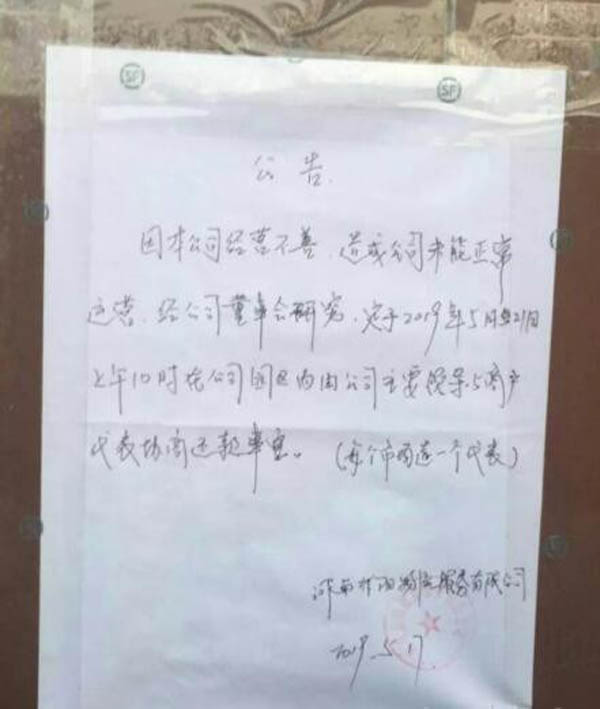 SF SF
公告
因本公司经营不善,造成公司未能正常
运营,经公司董事会研究,定于2019年5月21日
上午10时在公司园区内由公司主要领导与商户
代表协商还款事宜。(每个市场选一个代表)
服务有限公司
2019.5.17